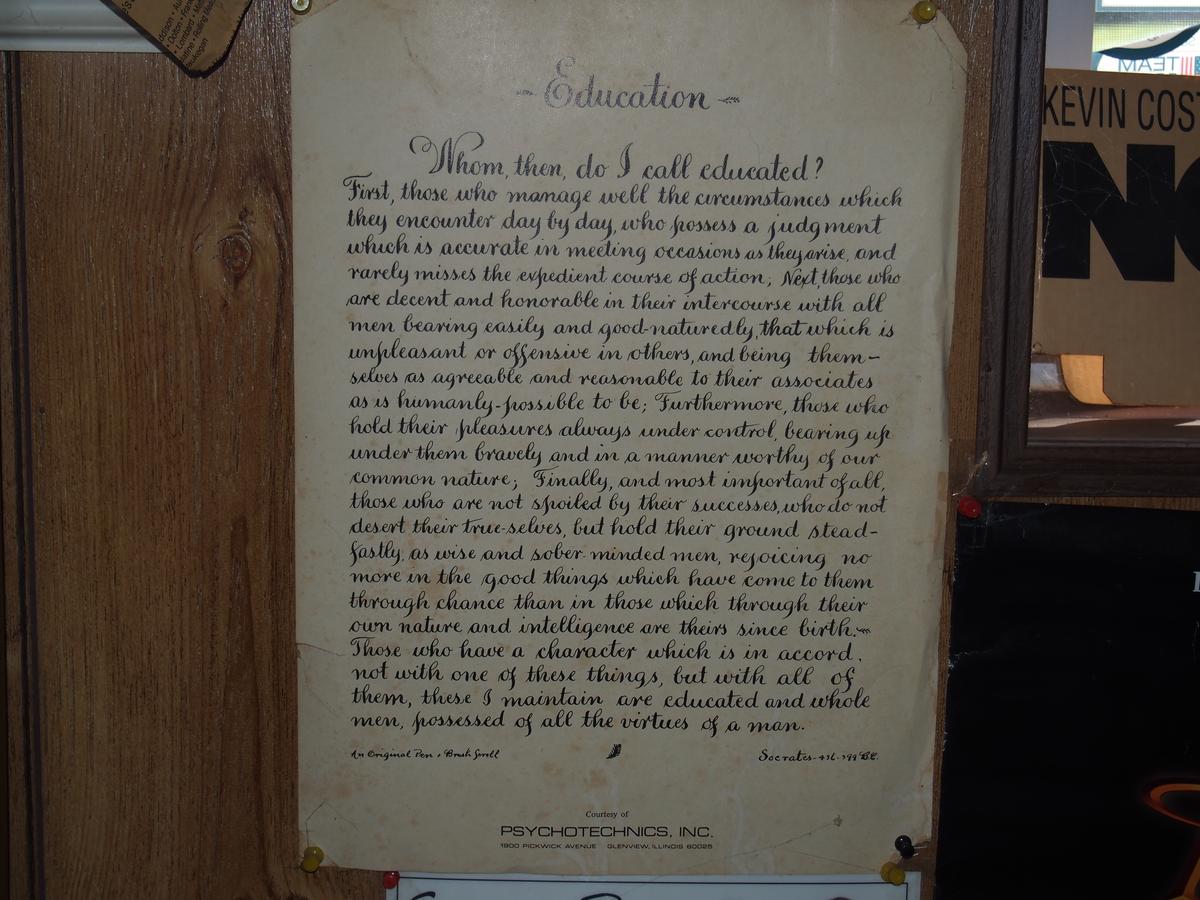 Education
Whom, then, do I call educated?
First, those who manage well the circumstances which
they encounter day by day, who possess a judgment
which is accurate in meeting occasions as they arise, and
rarely misses the expedient course of action; Next, those who
are decent and honorable in their intercourse with all
men bearing easily and good-naturedly, that which is
unpleasant or offensive in others, and being them-
selves as agreeable and reasonable to their associates
as is humanly-possible to be; Furthermore, those who
hold their pleasures always under control, bearing up
under them bravely and in a manner worthy of our
common nature; Finally, and most important of all,
those who are not spoiled by their successes, who do not
desert their true-selves, but hold their ground stead-
fastly, as wise and sober-minded men, rejoicing no
more in the good things which have come to them
through chance than in those which through their
own nature and intelligence are theirs since birth.
Those who have a character which is in accord,
not with one of these things, but with all of
them, these I maintain are educated and whole
men, possessed of all the virtues of a man.
An Original Pen & Brush Scroll
Socrates
Courtesy of
PSYCHOTECHNICS, INC.
1900 PICKWICK AVENUE GLENVIEW, ILLINOIS 60025
KEVIN COS
TEAM